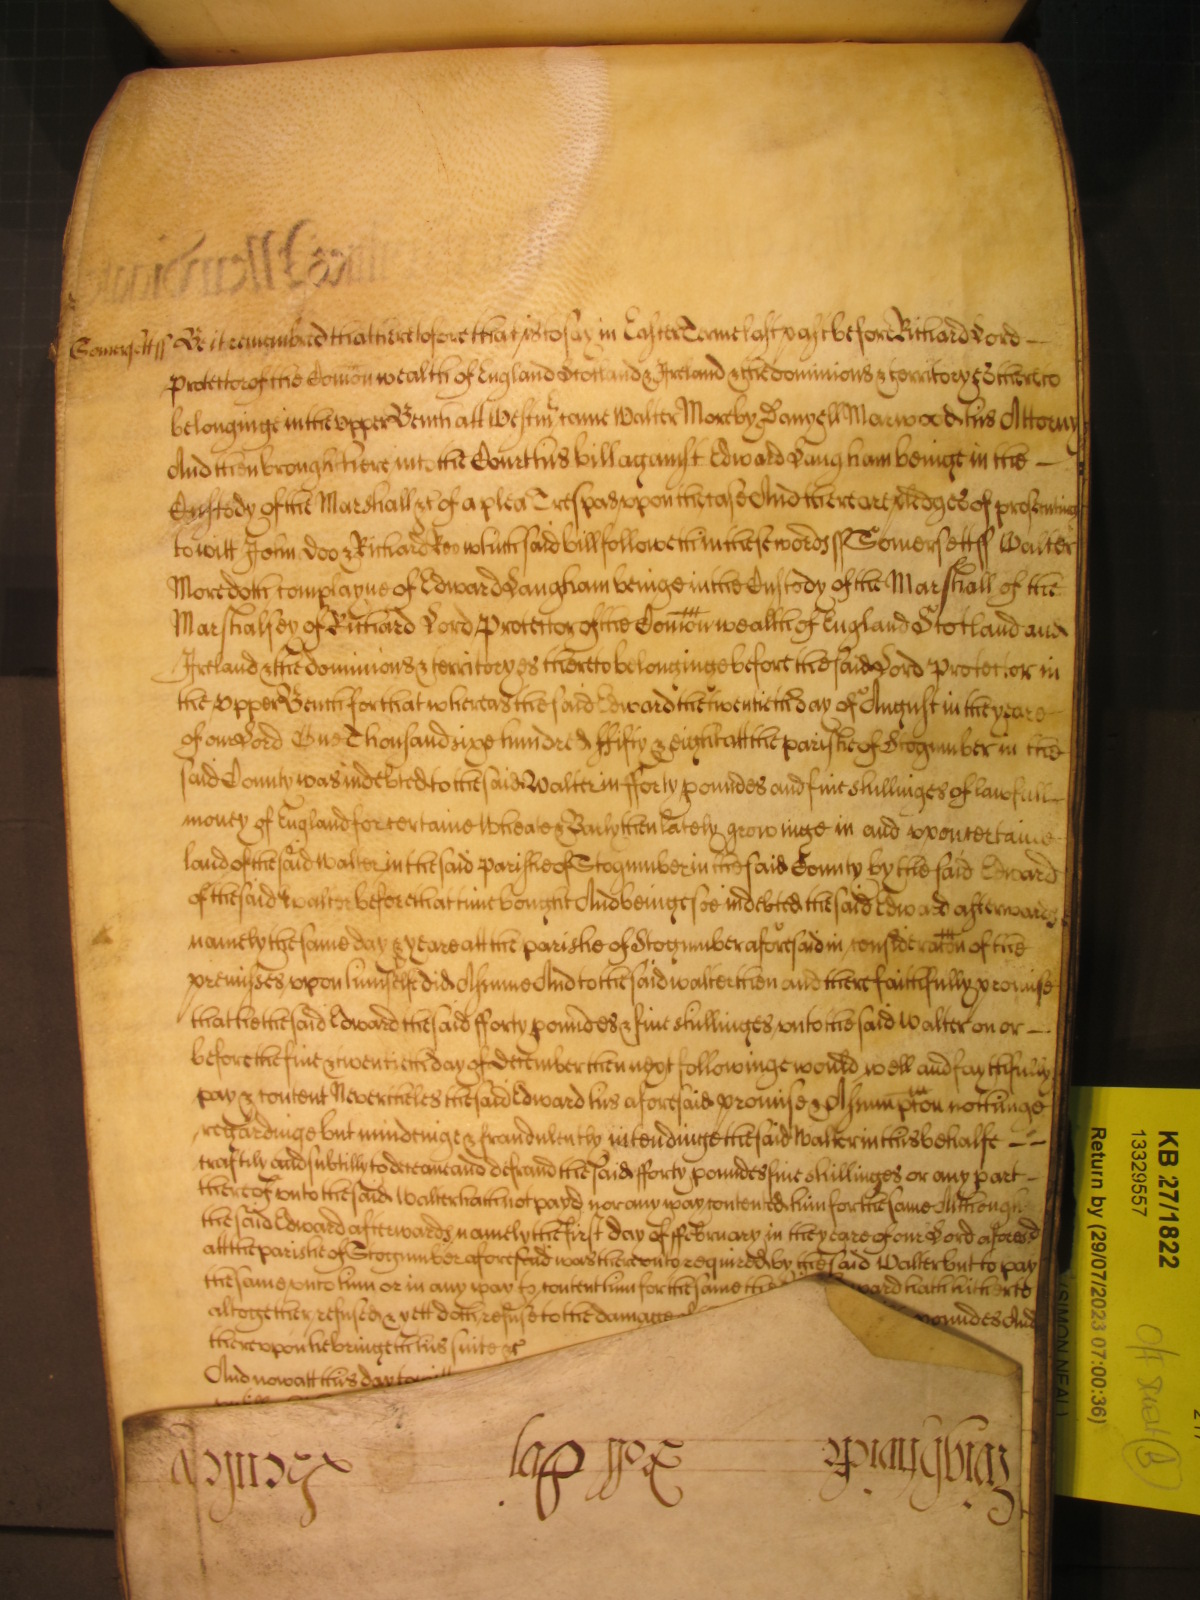 Somersett ss Be it remembred that heretofore that is to say in Easter Terme last past before Richard Lord
Protector of the Com̅onwealth of England Scotland & Ireland & the dominions & territoryes thereto
belonginge in the upper Bench att Westmr came Walter More by Danyell Marwood his Attorny
And then brought here into the Court his bill against Edward Langham beinge in the
Custody of the Marshall &c of a plea Trespas upon the case And there are pledges of prosecuting
to witt John Doo & Richard Roo which said bill followeth in these words ss Somersett ss Walter
More doth complayne of Edward Langham beinge in the Custody of the Marshall of the
Marshalsey of Richard Lord Protector of the Com̅onwealth of England Scotland and
Ireland & the dominions & territoryes thereto belonginge before the said Lord Protector in
the upper Bench for that whereas the said Edward the twentieth day of August in the yeare
of our Lord One Thousand sixe hundred ffifty & eight att the parishe of Stogumber in the
said County was indebted to the said Walter in fforty poundes and five shillinges of lawfull
money of England for certaine Wheate & Barly then lately growinge in and upon certaine
land of the said Walter in the said parishe of Stogumber in the said County by the said Edward
of the said Walter before that time bought And beinge soe indebted the said Edward afterwards
namely the same day & yeare att the parishe of Stogumber aforesaid in consideracon of the
premisses upon himselfe did Assume And to the said Walter then and there faithfully promise
that he the said Edward the said fforty poundes & five shillinges unto the said Walter on or
before the five & twentieth day of December then next followinge would well and faythfully
pay & content Neverthelesse the said Edward his aforesaid promise & Assumption nothinge
regardinge but mindeinge & fraudulently intendinge the said Walter in this behalfe
craftily and subtilly to deceave and defraud the said fforty poundes five shillinges or any part
thereof unto the said Walter hath not payd nor any way contented him for the same Although
the said Edward afterwards namely the first day of ffebruary in the yeare of our Lord aforesd
att the parishe of Stogumber aforesaid was thereunto required by the said Walter but to pay
the same unto him or in any way to content him for the same the ward hath hitherto
altogether refused & yett doth refuse to the damage poundes And
thereupon he bringeth his suite &c
And now att this day to witt
KB 27/1822
13329557
Return by (29/07/2023 07:00:36)
(SIMON NEAL)